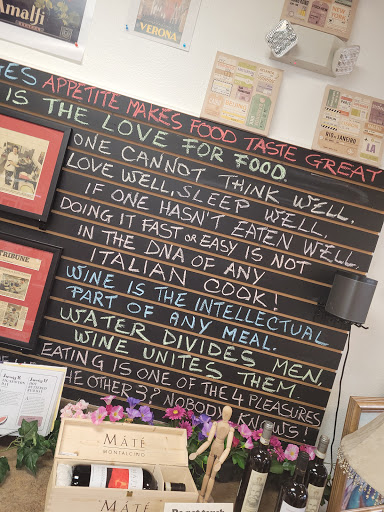 Amalfi
VERONA
RIO JANEIRO
GES APPETITE MAKES FOOD TASTE GREAT
IS THE LOVE FOR FOOD
ONE CANNOT THINK WELL,
LOVE WELL, SLEEP WELL,
IF ONE HASN'T EATEN WELL.
DOING IT FAST OR EASY IS NOT
IN THE DNA OF ANY
ITALIAN COOK!
WINE IS THE INTELLECTUAL
PART OF ANY MEAL.
WATER DIVIDES MEN,
WINE UNITES THEM
EATING IS ONE OF THE 4 PLEASURES
THE OTHER 3? NOBODY KNOWS!
TRIBUNE
MÁTÉ
MONTALCINO
MÁTÉ
Do not touch